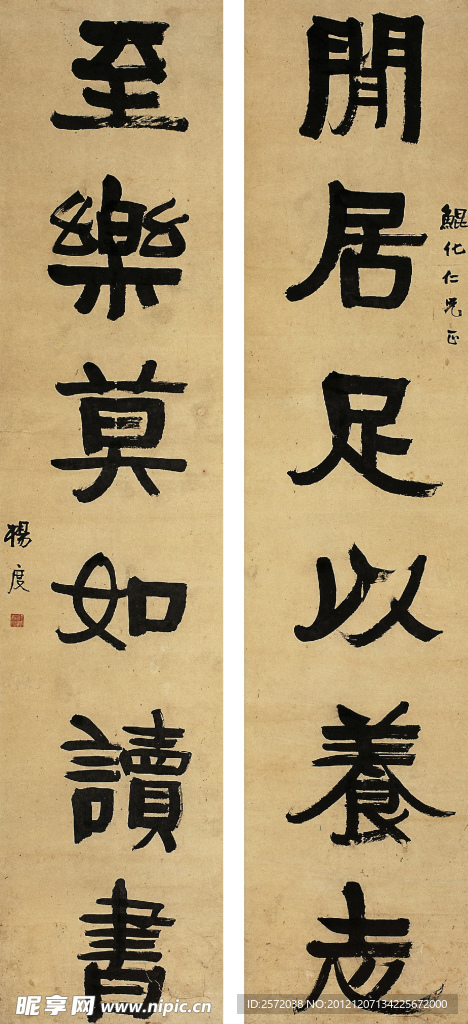 閒居足以養志
鯤化仁兄正
至樂莫如讀書
楊度
昵享网 www.nipic.cn
ID:2572038 NO:20121207134225672000